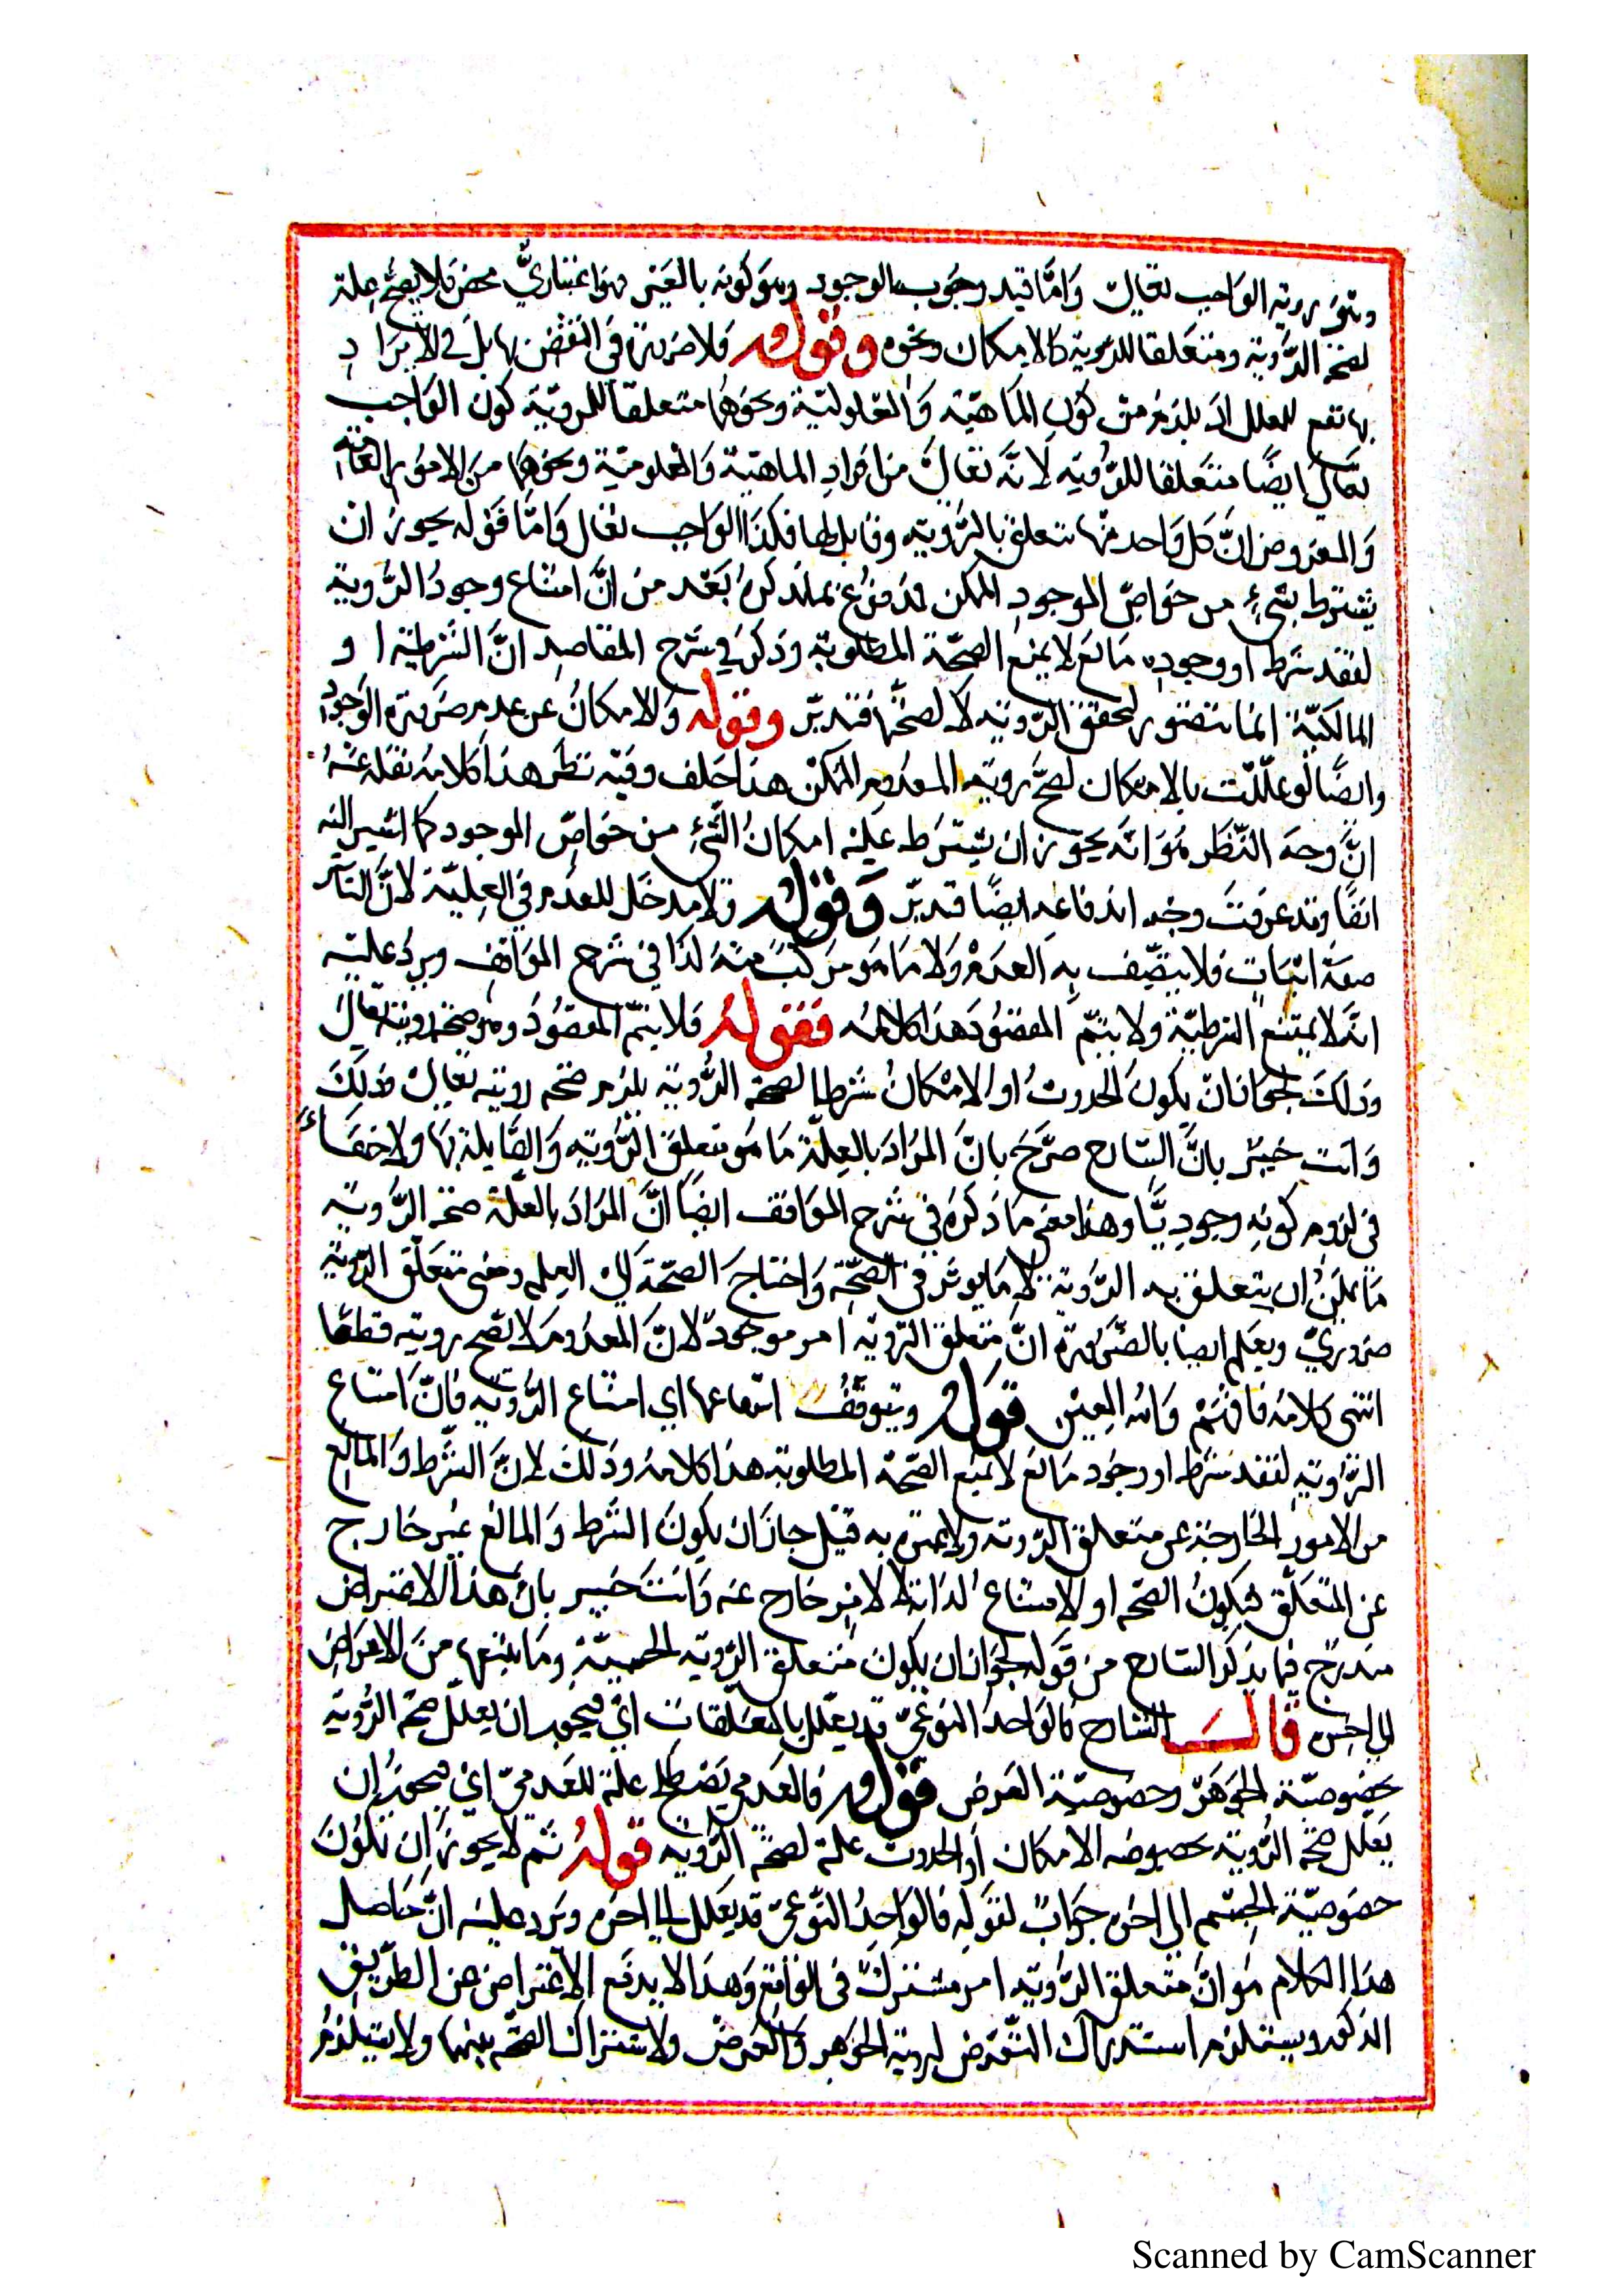 رؤية الواجب تعالى وَامَّا قيد وجُوب الوجود وهو كونه بالغير فهوَ اعتباريٌّ محض فلا يصحّ علة
لصحة الرُّؤية ومتعَلقا للرؤية كالامكان ونحوه وقوله فلا ضررَ في النقض بها بل في الايرَا دِ
بها نفع للمعلل اذ يلزمُ من كون الماهيّة وَالمعلوليّة ونحوهَا متعلقاً للرؤيَة كون الوَاجب
تعَالى ايضًا متعَلقا للرُّؤية لانَّه تعَالى من افرادِ الماهيّة وَالمعلوميّة ونحوهِمَا منَ الامورِ العَامَّة
وَالمفروض انَّ كل وَاحد منها تتعلق بالرُّؤية وقابل لها فكذَا الوَاجب تعَالى وَامَّا قَوْله يجوز ان
يشترط بشيءٍ من خوَاصِّ الموجودِ الممكن فمدفوع بمَا نذكرهُ بَعْد من انَّ امتناع وجودُ الرُّوية
لفقد شرط او وجودِ مَانع لا يمنع الصحّة المطلوبة وذكرَ في شرح المقاصِد انَّ الشَرطيّة ا و
المالكيّة انمَا تتصَّور لتحقق الرّوية لا لصحتّها فتدبّر وقوله وَالامكانُ عن عدمِ ضرَورَة الوَجودِ
وايضًا لو علّلت بالامكان لصحَّ رؤية المعدوم الممكن هذا خلف وفيه نظر هذا كلامه نقل عنهُ
انَّ وجهَ النّظَر هُوَ انّه يجوز ان يشترَط عليه امكانُ الشيءِ من خوَاصِّ الموجود كما اشير اليه
انفًا وقد عرفتَ وجْه اندفاعه ايضًا فتدبّر وَقوله وَلا مدخَل للعدَم في العِليّة لانَّ التأثير
صفة اثبات فلا يتّصِف بهِ العدَمُ ولا مَا هوَ مركبٌ منهُ كذا في شرح الموَاقف ويردُ عليه
انّه لا يمتنع الشرطيّة ولا يتمّ المقصُود هذا كلامه فقولهُ فلا يتمّ المقصُود وهو صحة رويته تعَالى
وَذلكَ لجوَاز ان يكونَ الحدوثُ او الامْكانُ شرطا لصحة الرُّوية يلزم صحة رويته تعَالى ذلكَ
وَانت خبيْر بانَّ الشارح صرَّحَ بانَّ المرَادَ بالعِلّة مَا هُوَ متعلق الرُّؤية وَالقابلة لهَا ولا خفَاءَ
في لزومِ كونهِ وجودِيًّا وهذا معنى مَا ذكرَهُ في شرح الموَاقف ايضًا انَّ المرَادَ بالعلّة صحة الرُّؤية
مَا يمكنُ ان يتعلق به الرُّوية لا مَا يوثر في الصّحة وَاحتاجَ الصّحة الى العلة وحتى متعَلّق الرؤية
ضرُوريّ ويعلم ايضا بالضَّرورة انَّ متعلق الرّوية امر موجودٌ لانَّ المعدُوم لا تصّح رويته قطعًا
انتهى كلامه فافهَمْ وَالله المعِين قوله ويتوقّفُ امتناعها اي امتناع الرُّؤية فانَّ امتناع
الرُّوية لفقد شرط او وجُود مَانع لا يمنَع الصّحّة المطلوبة هذا كلامهُ وذلك لانَّ الشّرط وَالمَانع
من الامورِ الخارجَة عن متعلق الرّوية ولا عبرة به قيل جازَ ان يكونَ الشرط وَالمانع غيْر خارج
عن المتعَلّق فيكونُ الصحة او الامتناع لذاته لا لامْرٍ خارج عنه وَانتَ خبير بانّ هذا الاعتراض
مندَرج فيما يذكر الشارح من قَوله لجوَاز ان يكون متعلق الرّوية الجسميّةِ ومَا يتبعها منَ الاعرَاضِ
الى اخره قالَ الشارح فالوَاحدُ النوعيّ قد يعَلّل بالمختلفات اي فيجوز ان يعلّل صحّة الرُّؤية
بخصُوصيّة الجَوهَر وخصُوصيّة العَرض قوله فالعَدميّ يصْلح علة للعَدميّ اي فيجوزُ ان
يعَلّل صحّة الرُّؤية بخصوصه الامكان أو الحدوث علة لصحّة الرّؤية قولهُ ثم لا يجوز ان تكونَ
خصُوصيّة الجسْم الى اخره جوابٌ لقَوله فالوَاحِدُ النّوعيّ قد يعَلل الى اخره ويَرد عليه انَّ حَاصِل
هذا الكلام هُوَ انَّ متعَلق الرُّؤية امر مشتركٌ في الواقع وَهذا لا يدفع الاعترَاض عن الطريق
المذكور ويستلزم استدراك التّعرض لرؤية الجوهَر وَالعَرضْ ولاشتراك الصحّة بينهَا ولا يستلزمُ
Scanned by CamScanner